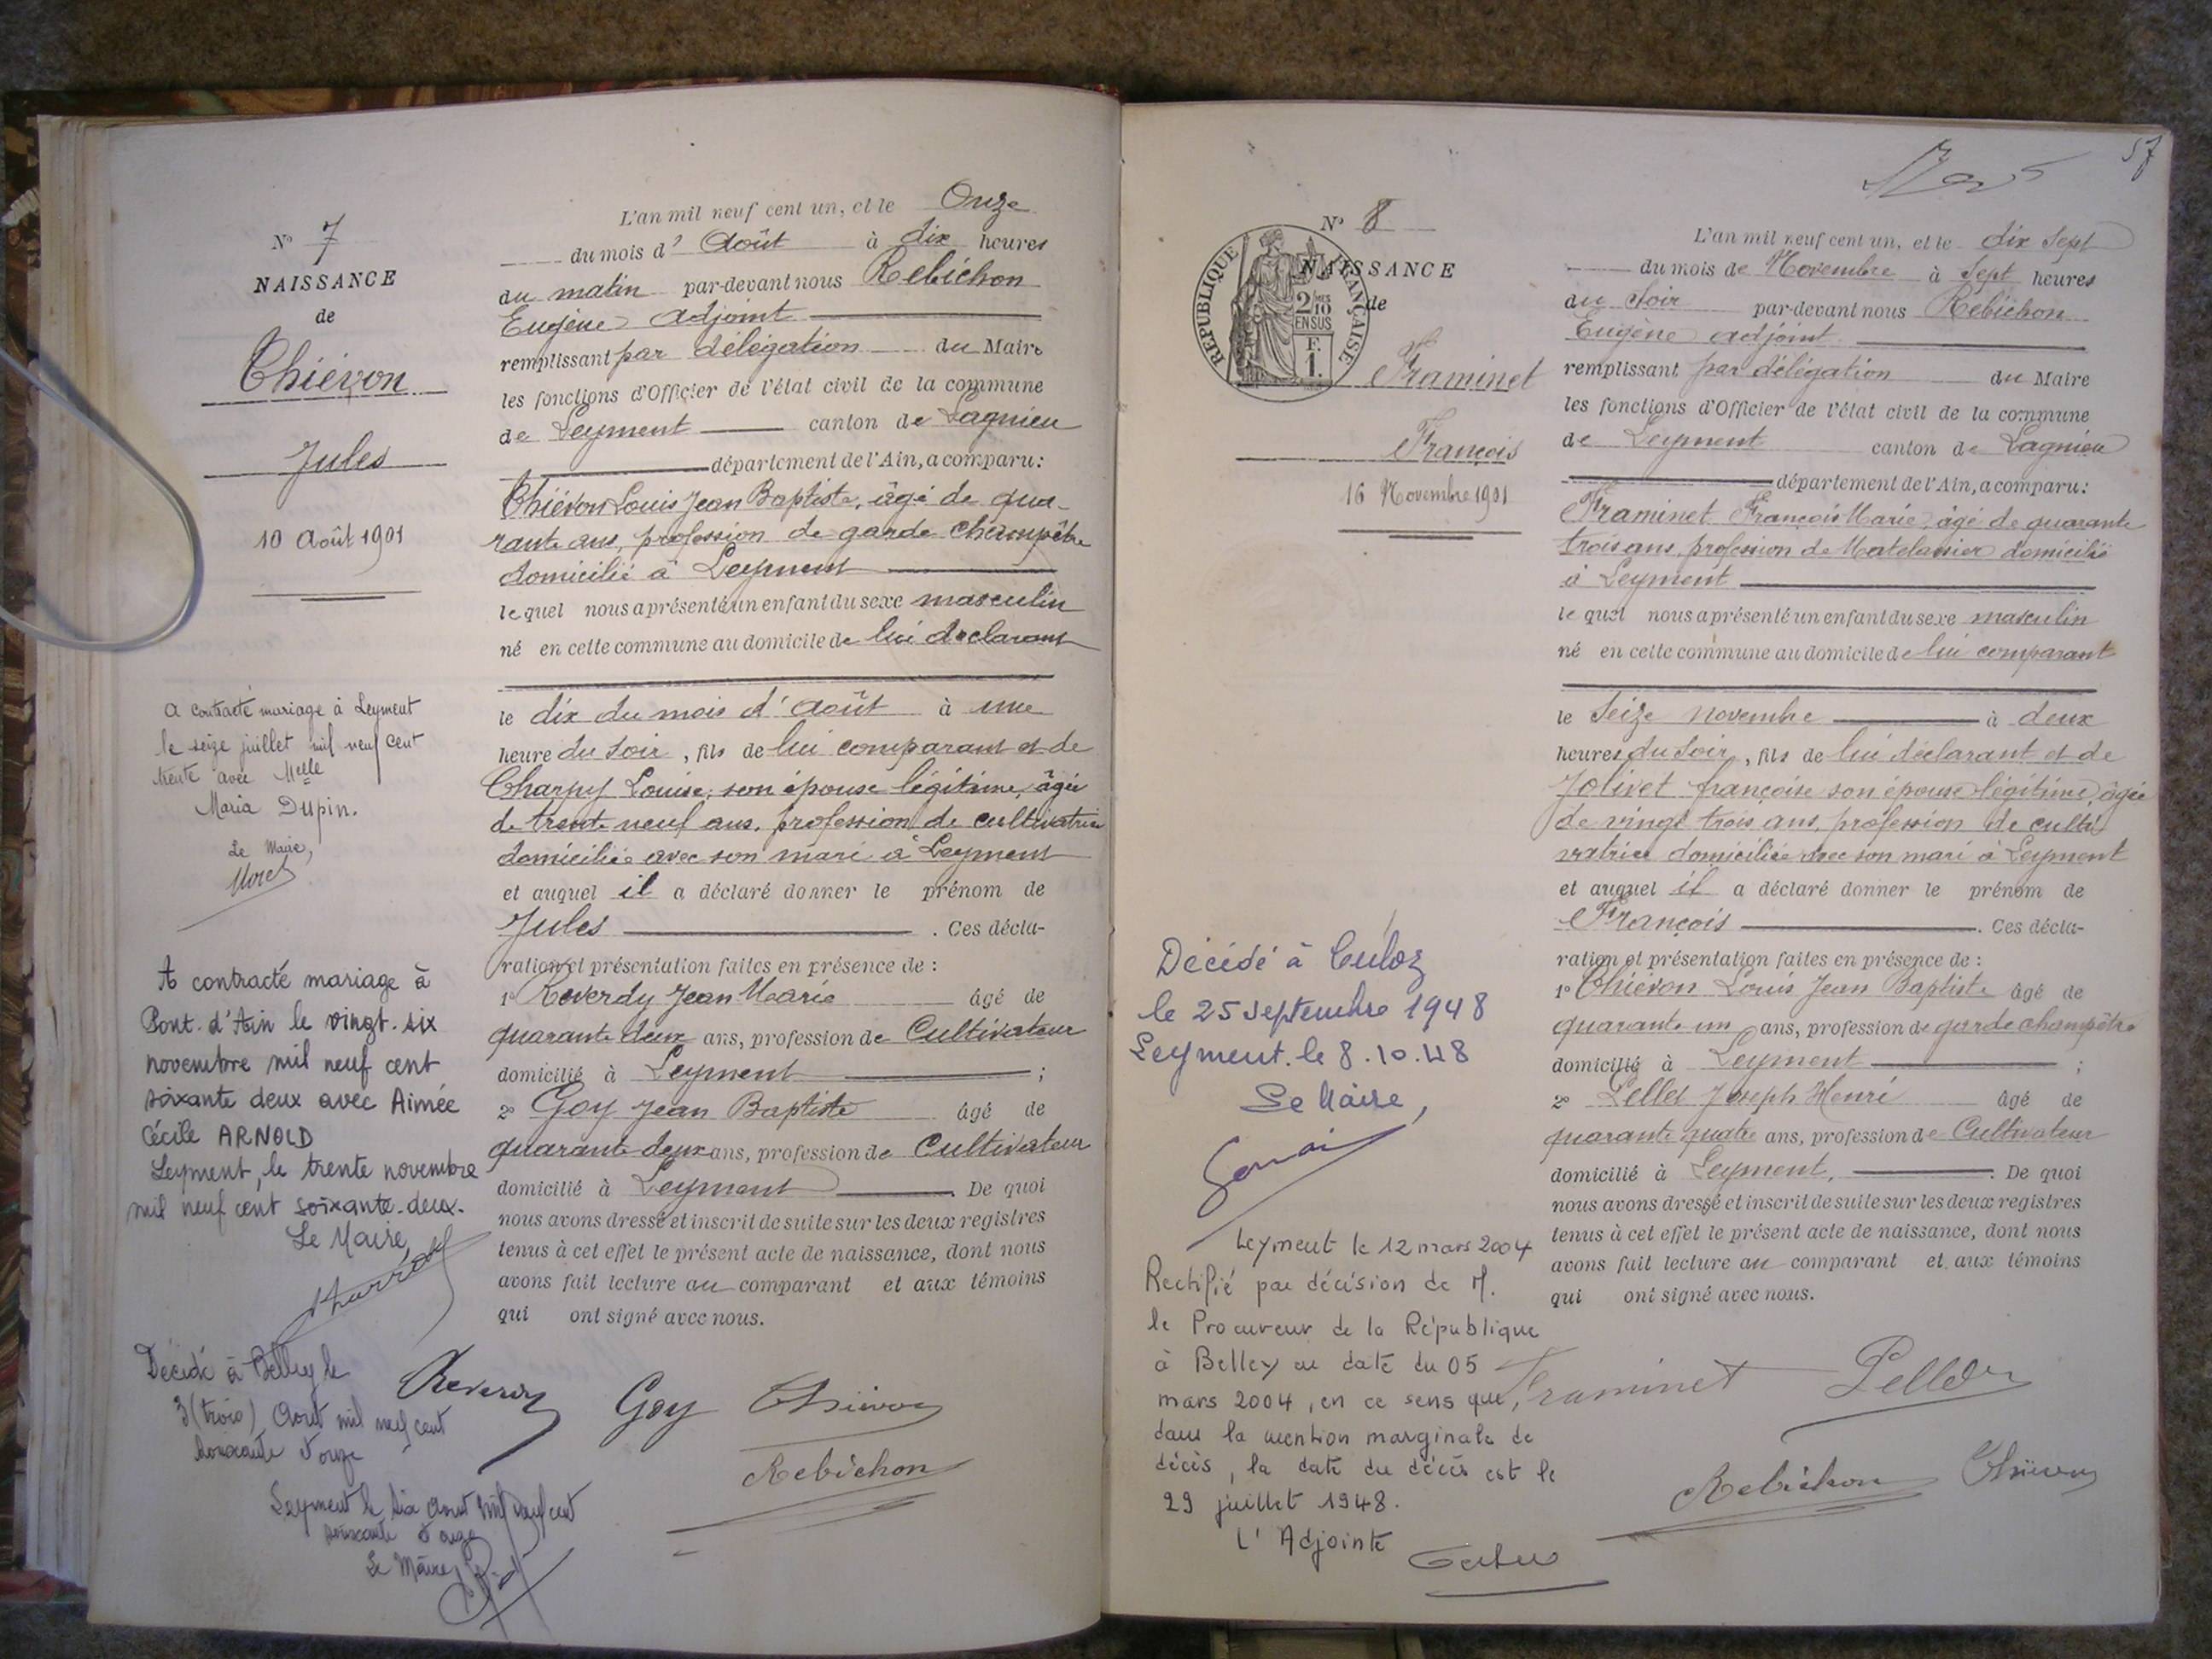 N° 7
NAISSANCE
de
Thiévon
Jules
10 Août 1901
A contracté mariage à Leyment
le seize juillet mil neuf cent
trente avec Melle
Maria Dupin.
Le Maire,
Morel
A contracté mariage à
Pont-d'Ain le vingt-six
novembre mil neuf cent
soixante deux avec Aimée
Cécile ARNOLD
Leyment, le trente novembre
mil neuf cent soixante-deux.
Le Maire,
Décédé à Belley le
3 (trois) Août mil neuf cent
soixante et onze
Leyment le six Août mil neuf cent
soixante et onze
Le Maire,
L'an mil neuf cent un, et le Onze
du mois d' Août à dix heures
du matin par-devant nous Rebichon
Eugène adjoint
remplissant par délégation du Maire
les fonctions d'Officier de l'état civil de la commune
de Leyment canton de Lagnieu
département de l'Ain, a comparu:
Thiévon Louis Jean Baptiste, âgé de qua-
rante ans, profession de garde champêtre
domicilié à Leyment
le quel nous a présenté un enfant du sexe masculin
né en cette commune au domicile de lui déclarant
le dix du mois d'Août à une
heure du soir, fils de lui comparant et de
Charpy Louise, son épouse légitime, âgée
de trente neuf ans, profession de cultivatrice
domiciliée avec son mari à Leyment
et auquel il a déclaré donner le prénom de
Jules . Ces décla-
ration et présentation faites en présence de :
1° Reverdy Jean Marie âgé de
quarante deux ans, profession de Cultivateur
domicilié à Leyment ;
2° Goy Jean Baptiste âgé de
quarante deux ans, profession de Cultivateur
domicilié à Leyment . De quoi
nous avons dressé et inscrit de suite sur les deux registres
tenus à cet effet le présent acte de naissance, dont nous
avons fait lecture au comparant et aux témoins
qui ont signé avec nous.
Reverdy Goy Thiévon
Rebichon
57
N° 8
NAISSANCE
de
RÉPUBLIQUE FRANÇAISE
2/10 EN SUS
F.
1.
Framinet
François
16 Novembre 1901
Décédé à Culoz
le 25 septembre 1948
Leyment. le 8.10.48
Le Maire,
Leyment le 12 mars 2004
Rectifié par décision de M.
le Procureur de la République
à Belley en date du 05
mars 2004, en ce sens que,
dans la mention marginale de
décès, la date du décès est le
29 juillet 1948.
L'Adjointe
L'an mil neuf cent un, et le dix Sept
du mois de Novembre à Sept heures
du soir par-devant nous Rebichon
Eugène adjoint
remplissant par délégation du Maire
les fonctions d'Officier de l'état civil de la commune
de Leyment canton de Lagnieu
département de l'Ain, a comparu:
Framinet François Marie, âgé de quarante
trois ans, profession de Matelassier domicilié
à Leyment
le quel nous a présenté un enfant du sexe masculin
né en cette commune au domicile de lui comparant
le Seize novembre à deux
heures du soir, fils de lui déclarant et de
Jolivet françoise son épouse légitime, âgée
de vingt trois ans, profession de culti
vatrice domiciliée avec son mari à Leyment
et auquel il a déclaré donner le prénom de
François . Ces décla-
ration et présentation faites en présence de :
1° Thiévon Louis Jean Baptiste âgé de
quarante un ans, profession de garde champêtre
domicilié à Leyment ;
2° Pellet Joseph Henri âgé de
quarante quatre ans, profession de Cultivateur
domicilié à Leyment, . De quoi
nous avons dressé et inscrit de suite sur les deux registres
tenus à cet effet le présent acte de naissance, dont nous
avons fait lecture au comparant et aux témoins
qui ont signé avec nous.
Framinet Pellet
Rebichon Thiévon